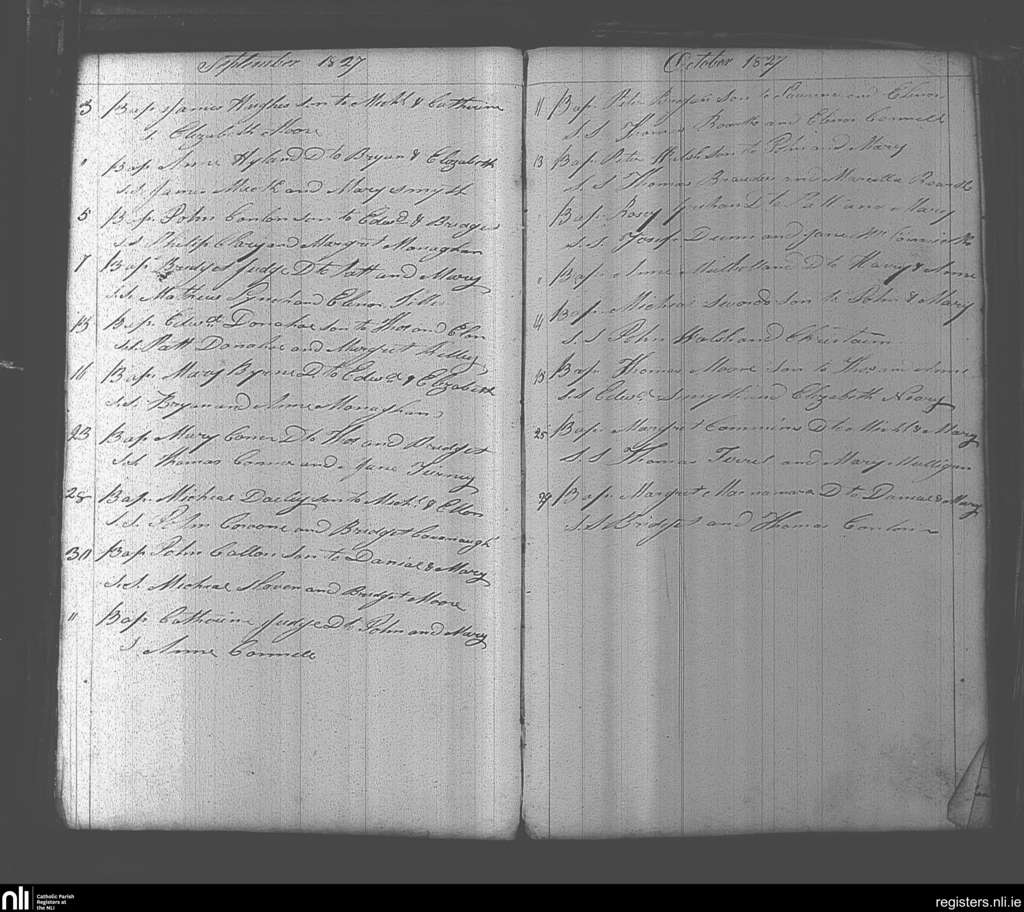 September 1827
3 Bap. James Hughes son to Michl. & Catherine
S. Elizabeth Moore
" Bap. Anne Hyland D to Bryan & Elizabeth
S.S. James and Mary Smyth
5 Bap. John Conlon son to Edwd. & Bridget
S.S. Philip Clary and Margret Monaghan
7 Bap. Bridget Judge D to Patt and Mary
S.S. Mathew Lynch and Elinor
15 Bap. Edwd. Donahoe son to Thos and Elen
S.S. Patt Donahoe and Margret Kelley
16 Bap. Mary Byrne D. to Edwd. & Elizabeth
S.S. Bryan and Anne Monaghan
23 Bap. Mary Coner D to Thos and Bridget
S.S. Thomas Conner and Jane Tierney
28 Bap. Micheal Darley son to Michl. & Ellen
S.S. John Coroone and Bridget Cavanaugh
30 Bap. John Callon son to Daniel & Mary
S.S. Micheal Slaven and Bridget Moore
" Bap. Catherine Judge D to John and Mary
S Anne Connell
October 1827
11 Bap. Peter son to and Elinor
S.S. Thomas Rourke and Elinor Connell
13 Bap. Peter Welsh son to and Mary
S.S Thomas and Marcella
Bap. Rosey to Patt and Mary
S.S. Joseph Dunn and Jane
" Bap. Anne Mulholland D to Harry & Anne
14 Bap. Micheal Swords son to John & Mary
S.S John Walsh and
15 Bap. Thomas Moore son to Thos and Anne
S.S Edwd. Smyth and Elizabeth Neary
25 Bap. Margret Commins D to Michl. & Mary
S S Thomas Tirrel and Mary Mulligan
29 Bap. Margret Macnamara D to Daniel & Mary
S.S Bridget and Thomas Conlon
nli
Catholic Parish
Registers at
the NLI
registers.nli.ie